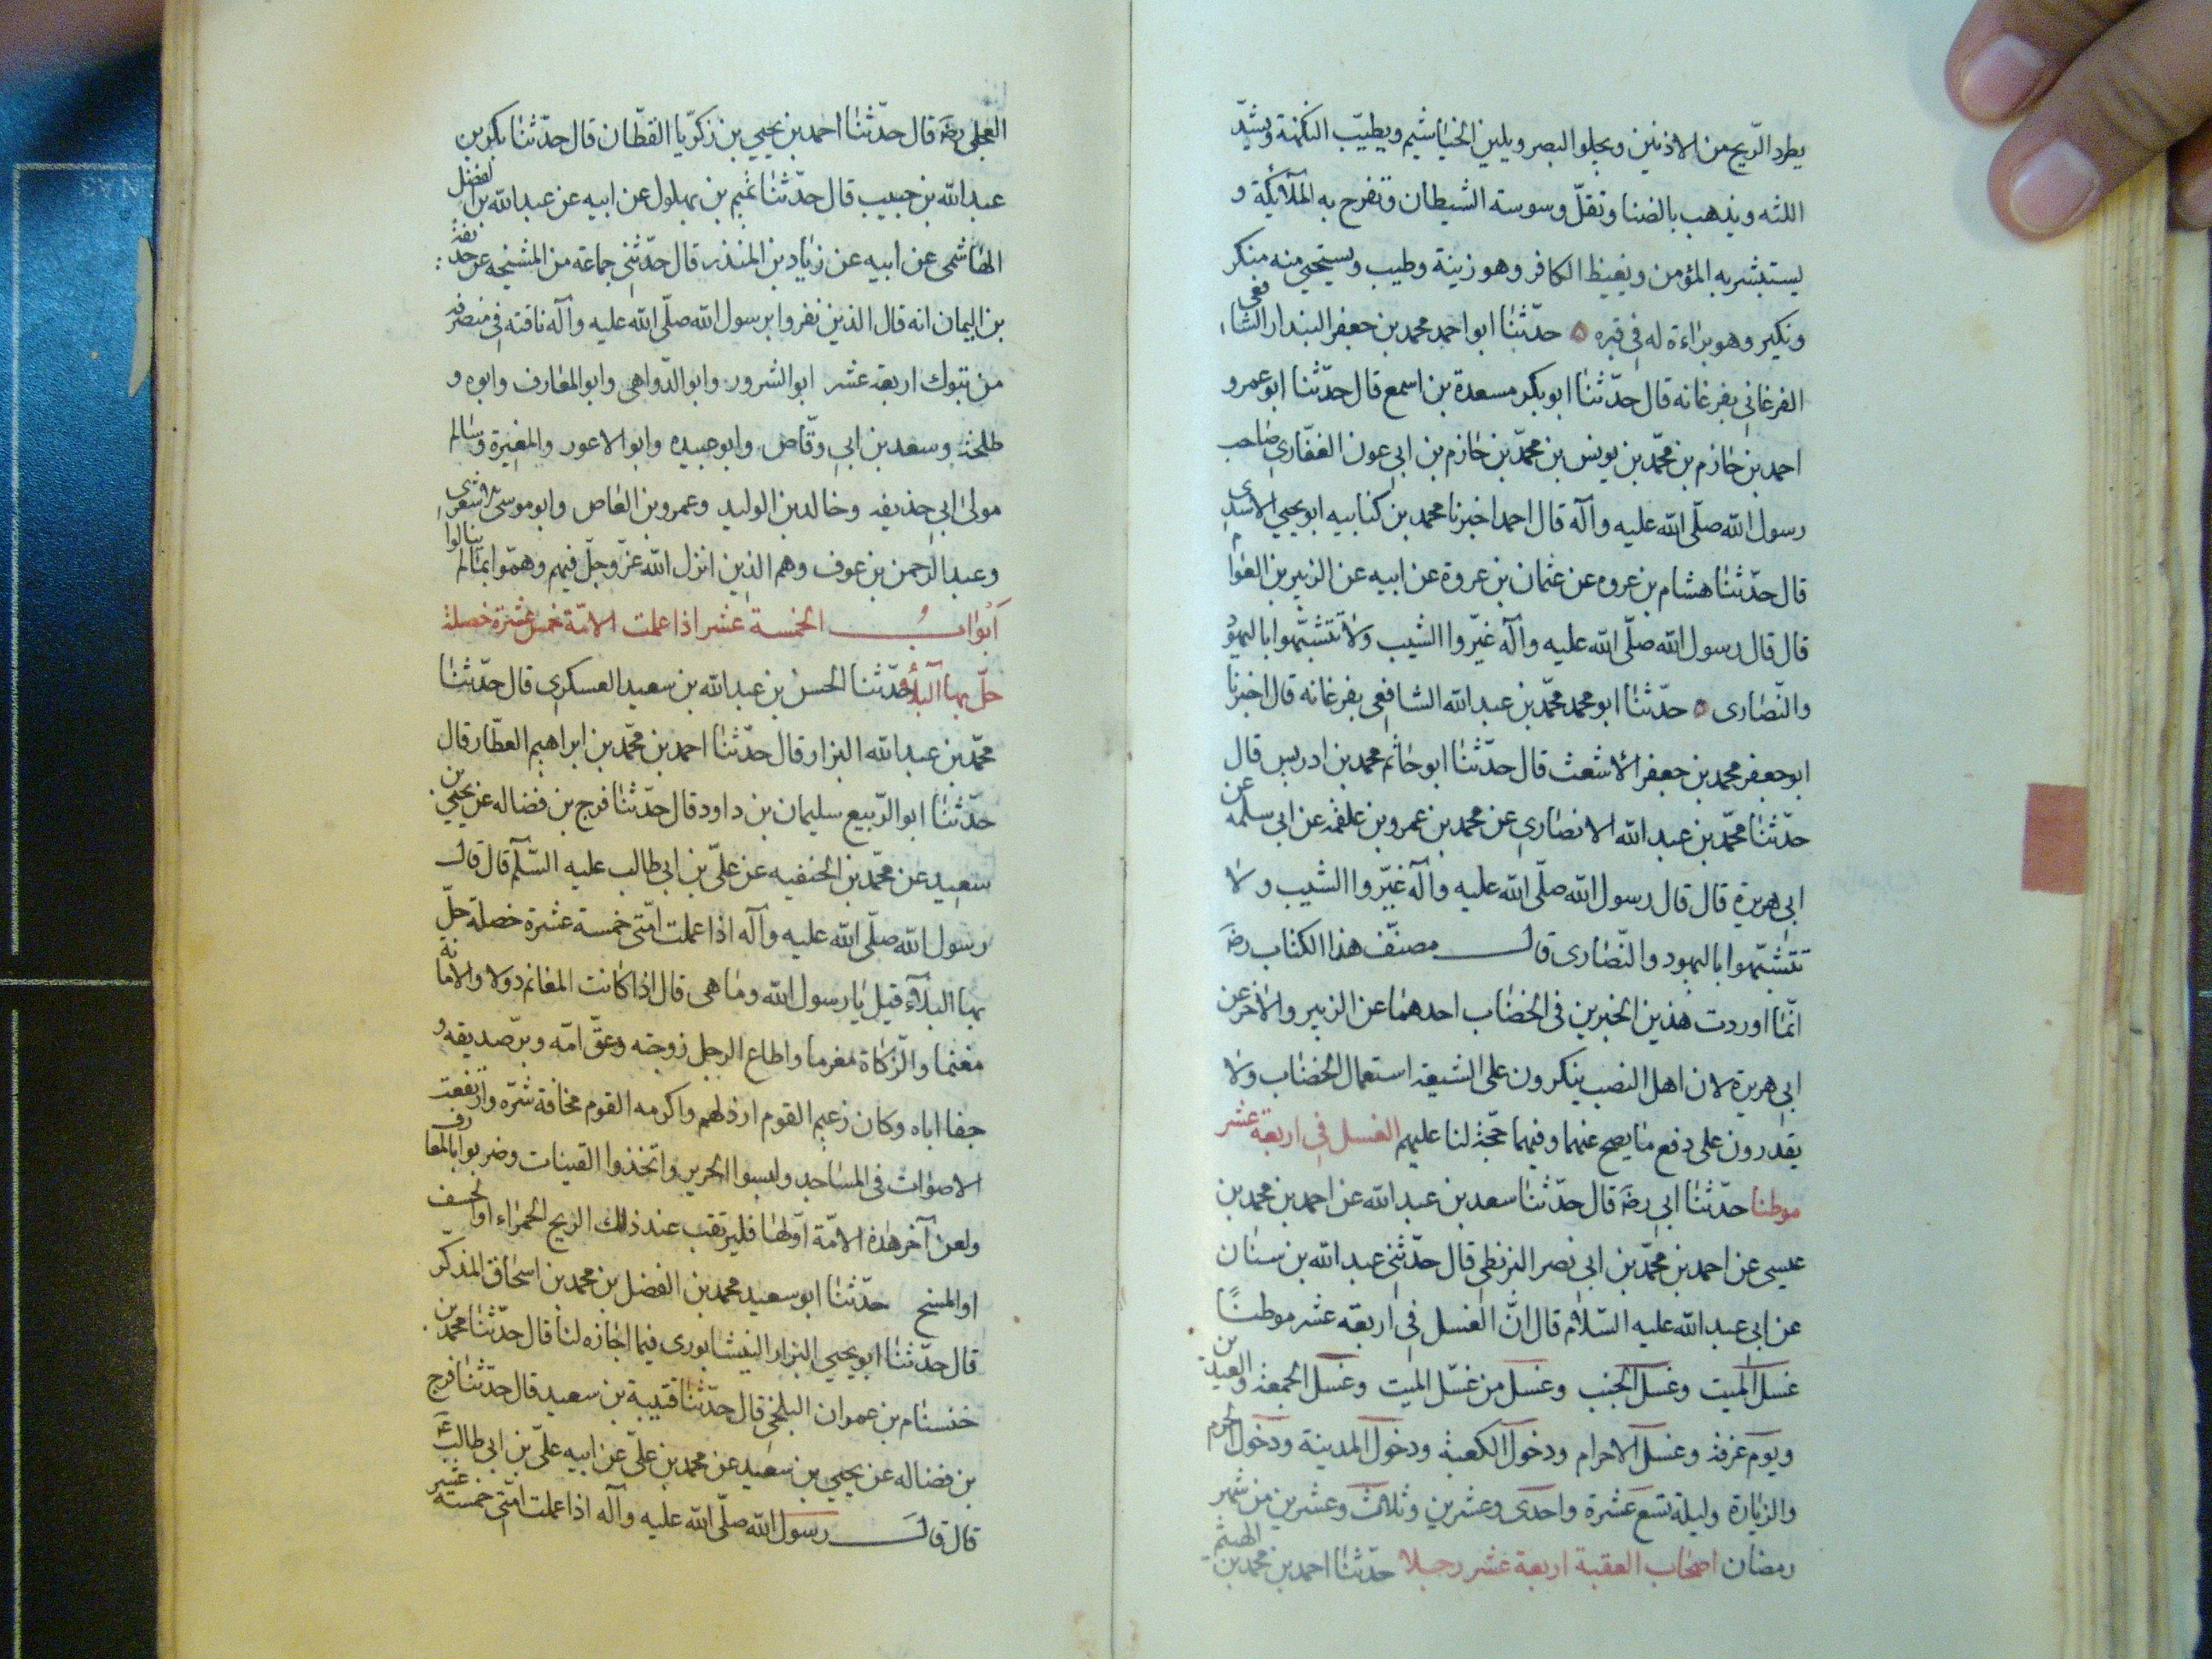 يطرد الرّيح من الاذنين ويجلو البصر ويلين الخياشيم ويطيّب النكهة ويشدّ
اللثه ويذهب بالضنا وتقلّ وسوسة الشيطان وتفرح به الملآئكة و
يستبشر به المؤمن ويغيظ الكافر وهو زينة وطيب ويستحيي منه منكر
ونكير وهو براءة له في قبره حدّثنا ابو احمد محمد بن جعفر البندار الشافعي
الفرغاني بفرغانه قال حدّثنا ابو بكر مسعدة بن اسمع قال حدّثنا ابو عمرو
احمد بن خازم بن محمّد بن يونس بن محمّد بن خازم بن ابي عون الغفّاري صاحب
رسول الله صلّى الله عليه وآله قال احمد اخبرنا محمد بن كنابيه ابو يحيي الاسدي
قال حدّثنا هشام بن عروه عن عثمان بن عروة عن ابيه عن الزبير بن العوام
قال قال رسول الله صلّى الله عليه وآله غيّروا الشيب ولا تتشبّهوا باليهود
والنّصارى حدّثنا ابو محمد محمّد بن عبد الله الشافعي بفرغانه قال اخبرنا
ابو جعفر محمد بن جعفر الاشعث قال حدّثنا ابو حاتم محمد بن ادريس قال
حدّثنا محمّد بن عبد الله الانصاري عن محمد بن عمرو بن علقمه عن ابي سلمه عن
ابي هريرة قال قال رسول الله صلّى الله عليه وآله غيّروا الشيب ولا
تتشبّهوا باليهود والنّصارى قال مصنّف هذا الكتاب رضه
انّما اوردت هذين الخبرين في الخضاب احدهما عن الزبير والاخر عن
ابي هريرة لان اهل النصب ينكرون على الشيعه استعمال الخضاب ولا
يقدرون على دفع ما يصح عنهما وفيهما حجّة لنا عليهم الغسل في اربعة عشر
موطنا حدّثنا ابي رضه قال حدّثنا سعد بن عبد الله عن احمد بن محمد بن
عيسى عن احمد بن محمّد بن ابي نصر البزنطي قال حدّثني عبد الله بن سنان
عن ابي عبد الله عليه السّلام قال انّ الغسل في اربعة عشر موطنًا
غسل الميت وغسل الجنب وغسل من غسّل الميت وغسل الجمعه والعيدين
ويوم عرفه وغسل الاحرام ودخول الكعبة ودخول المدينة ودخول الحرم
والزيارة وليلة تسع عشرة واحدى وعشرين وثلاث وعشرين من شهر
رمضان اصحاب العقبة اربعة عشر رجلا حدّثنا احمد بن محمد بن الهيثم
العجلي رضه قال حدّثنا احمد بن يحيي بن زكريّا القطّان قال حدّثنا بكر بن
عبد الله بن حبيب قال حدّثنا تميم بن بهلول عن ابيه عن عبد الله بن الفضل
الهاشمي عن ابيه عن زياد بن المنذر قال حدّثني جماعة من المشيخه عن حذيفة
بن اليمان انه قال الذين نفروا برسول الله صلّى الله عليه وآله ناقته في منصرفه
من تبوك اربعة عشر ابو الشرور وابو الدّواهي وابو المعارف وابوه و
طلحة وسعد بن ابي وقّاص وابو عبيده وابو الاعور والمغيرة وسالم
مولى ابي حذيفه وخالد بن الوليد وعمرو بن العاص وابو موسى الاشعري
وعبد الرّحمن بن عوف وهم الذين انزل الله عزّ وجلّ فيهم وهمّوا بما لم ينالوا
ابواب الخمسة عشر اذا عملت الامّة خمس عشرة خصلة
حلّ بها البلآء حدّثنا الحسن بن عبد الله بن سعيد العسكري قال حدّثنا
محمّد بن عبد الله البزاز قال حدّثنا احمد بن محمّد بن ابراهيم العطّار قال
حدّثنا ابو الرّبيع سليمان بن داود قال حدّثنا فرج بن فضاله عن يحيي بن
سعيد عن محمّد بن الحنفيه عن علىّ بن ابي طالب عليه السّلم قال قال
رسول الله صلّى الله عليه وآله اذا عملت امّتي خمسة عشرة خصلة حلّ
بها البلآء قيل يا رسول الله وما هى قال اذا كانت المغانم دولا والامانة
مغنما والزّكاة مغرما واطاع الرجل زوجته وعقّ امّه وبرّ صديقه و
جفا اباه وكان زعيم القوم ارذلهم واكرمه القوم مخافة شرّه وارتفعت
الاصوات في المساجد ولبسوا الحرير واتّخذوا القينات وضربوا بالمعازف
ولعن آخر هذه الامّة اوّلها فليرتقب عند ذلك الريح الحمراء او الخسف
او المسخ حدّثنا ابو سعيد محمد بن الفضل بن محمد بن اسحاق المذكّر
قال حدّثنا ابو يحيي البزاز النيشابوري فيما اجازه لنا قال حدّثنا محمد بن
خنسنام بن عمران البلخي قال حدّثنا قتيبة بن سعيد قال حدّثنا فرج
بن فضاله عن يحيي بن سعيد عن محمد بن علىّ عن ابيه علىّ بن ابي طالب ع
قال قال رسول الله صلّى الله عليه وآله اذا عملت امّتي خمسة عشر